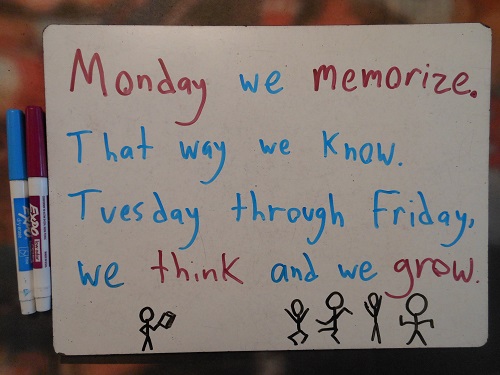 Monday we memorize.
That way we know.
Tuesday through Friday,
we think and we grow.
EXPO